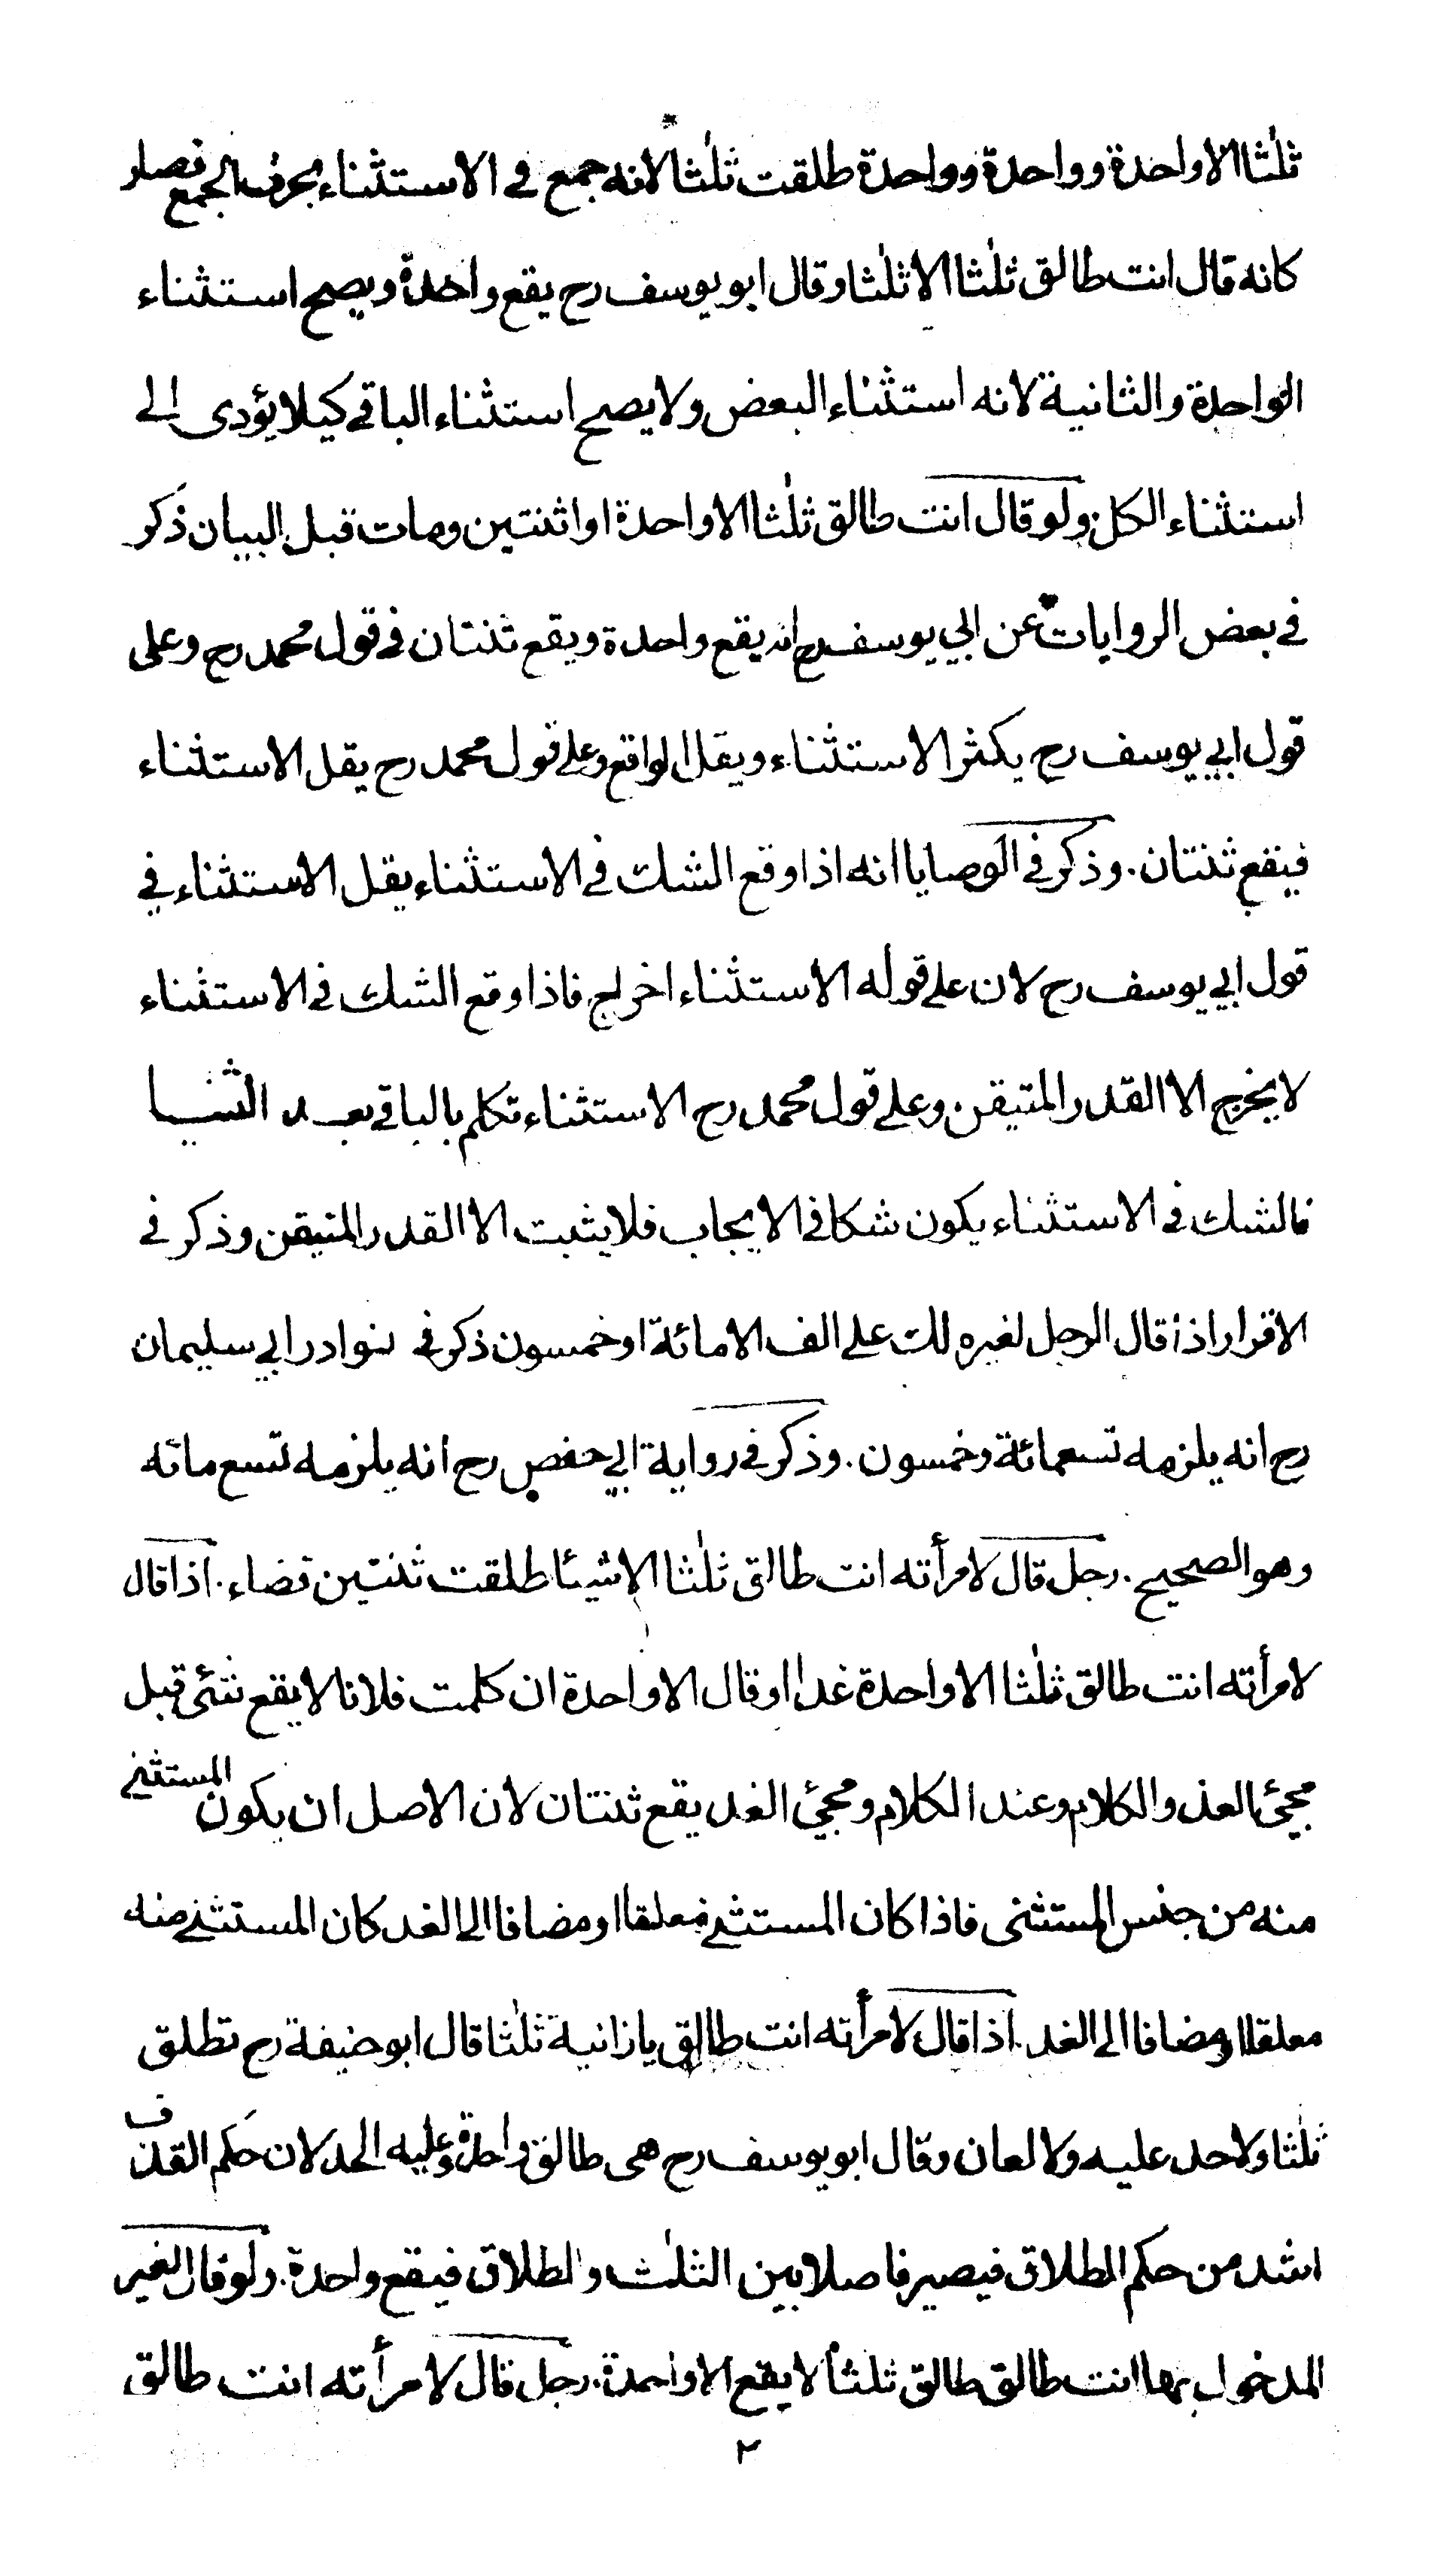 ثلٰثا الا واحدة وواحدة وواحدة طلقت ثلٰثا لانه جمع في الاستثناء بحرف الجمع فصار
كانه قال انت طالق ثلٰثا الا ثلٰثا وقال ابو يوسف رح يقع واحدة ويصح استثناء
الواحدة والثانية لانه استثناء البعض ولا يصح استثناء الباقي كيلا يؤدى الى
استثناء الكل ولو قال انت طالق ثلٰثا الا واحدة او اثنتين ومات قبل البيان ذكر
في بعض الروايات عن ابي يوسف رح انه يقع واحدة ويقع ثنتان في قول محمد رح وعلى
قول ابي يوسف رح يكثر الاستثناء ويقل الواقع وعلى قول محمد رح يقل الاستثناء
فيقع ثنتان. وذكر في الوصايا انه اذا وقع الشك في الاستثناء يقل الاستثناء في
قول ابي يوسف رح لان على قوله الاستثناء اخراج فاذا وقع الشك في الاستثناء
لا يخرج الا القدر المتيقن. وعلى قول محمد رح الاستثناء تكلم بالباقي بعد الثنيا
فالشك في الاستثناء يكون شكا في الايجاب فلا يثبت الا القدر المتيقن وذكر في
الاقرار اذا قال الرجل لغيره لك على الف الا مائة او خمسون ذكر في نوادر ابي سليمان
رح انه يلزمه تسعمائة وخمسون. وذكر في رواية ابي حفص رح انه يلزمه تسع مائه
وهو الصحيح. رجل قال لامرأته انت طالق ثلٰثا الا شيئا طلقت ثنتين قضاء. اذا قال
لامرأته انت طالق ثلٰثا الا واحدة غدا او قال الا واحدة ان كلمت فلانا لا يقع شئ قبل
مجيئ الغد والكلام وعند الكلام ومجيئ الغد يقع ثنتان لان الاصل ان يكون المستثنى
منه من جنس المستثنى فاذا كان المستثنى معلقا او مضافا الى الغد كان المستثنى منه
معلقا او مضافا الى الغد. اذا قال لامرأته انت طالق يا زانية ثلٰثا قال ابو حنيفة رح تطلق
ثلٰثا ولا حد عليه ولا لعان وقال ابو يوسف رح هى طالق واحدة وعليه الحد لان حكم القذف
اشد من حكم الطلاق فيصير فاصلا بين الثلٰث والطلاق فيقع واحدة. ولو قال لغير
المدخول بها انت طالق طالق ثلثا لا يقع الا واحدة. رجل قال لامرأته انت طالق
٢